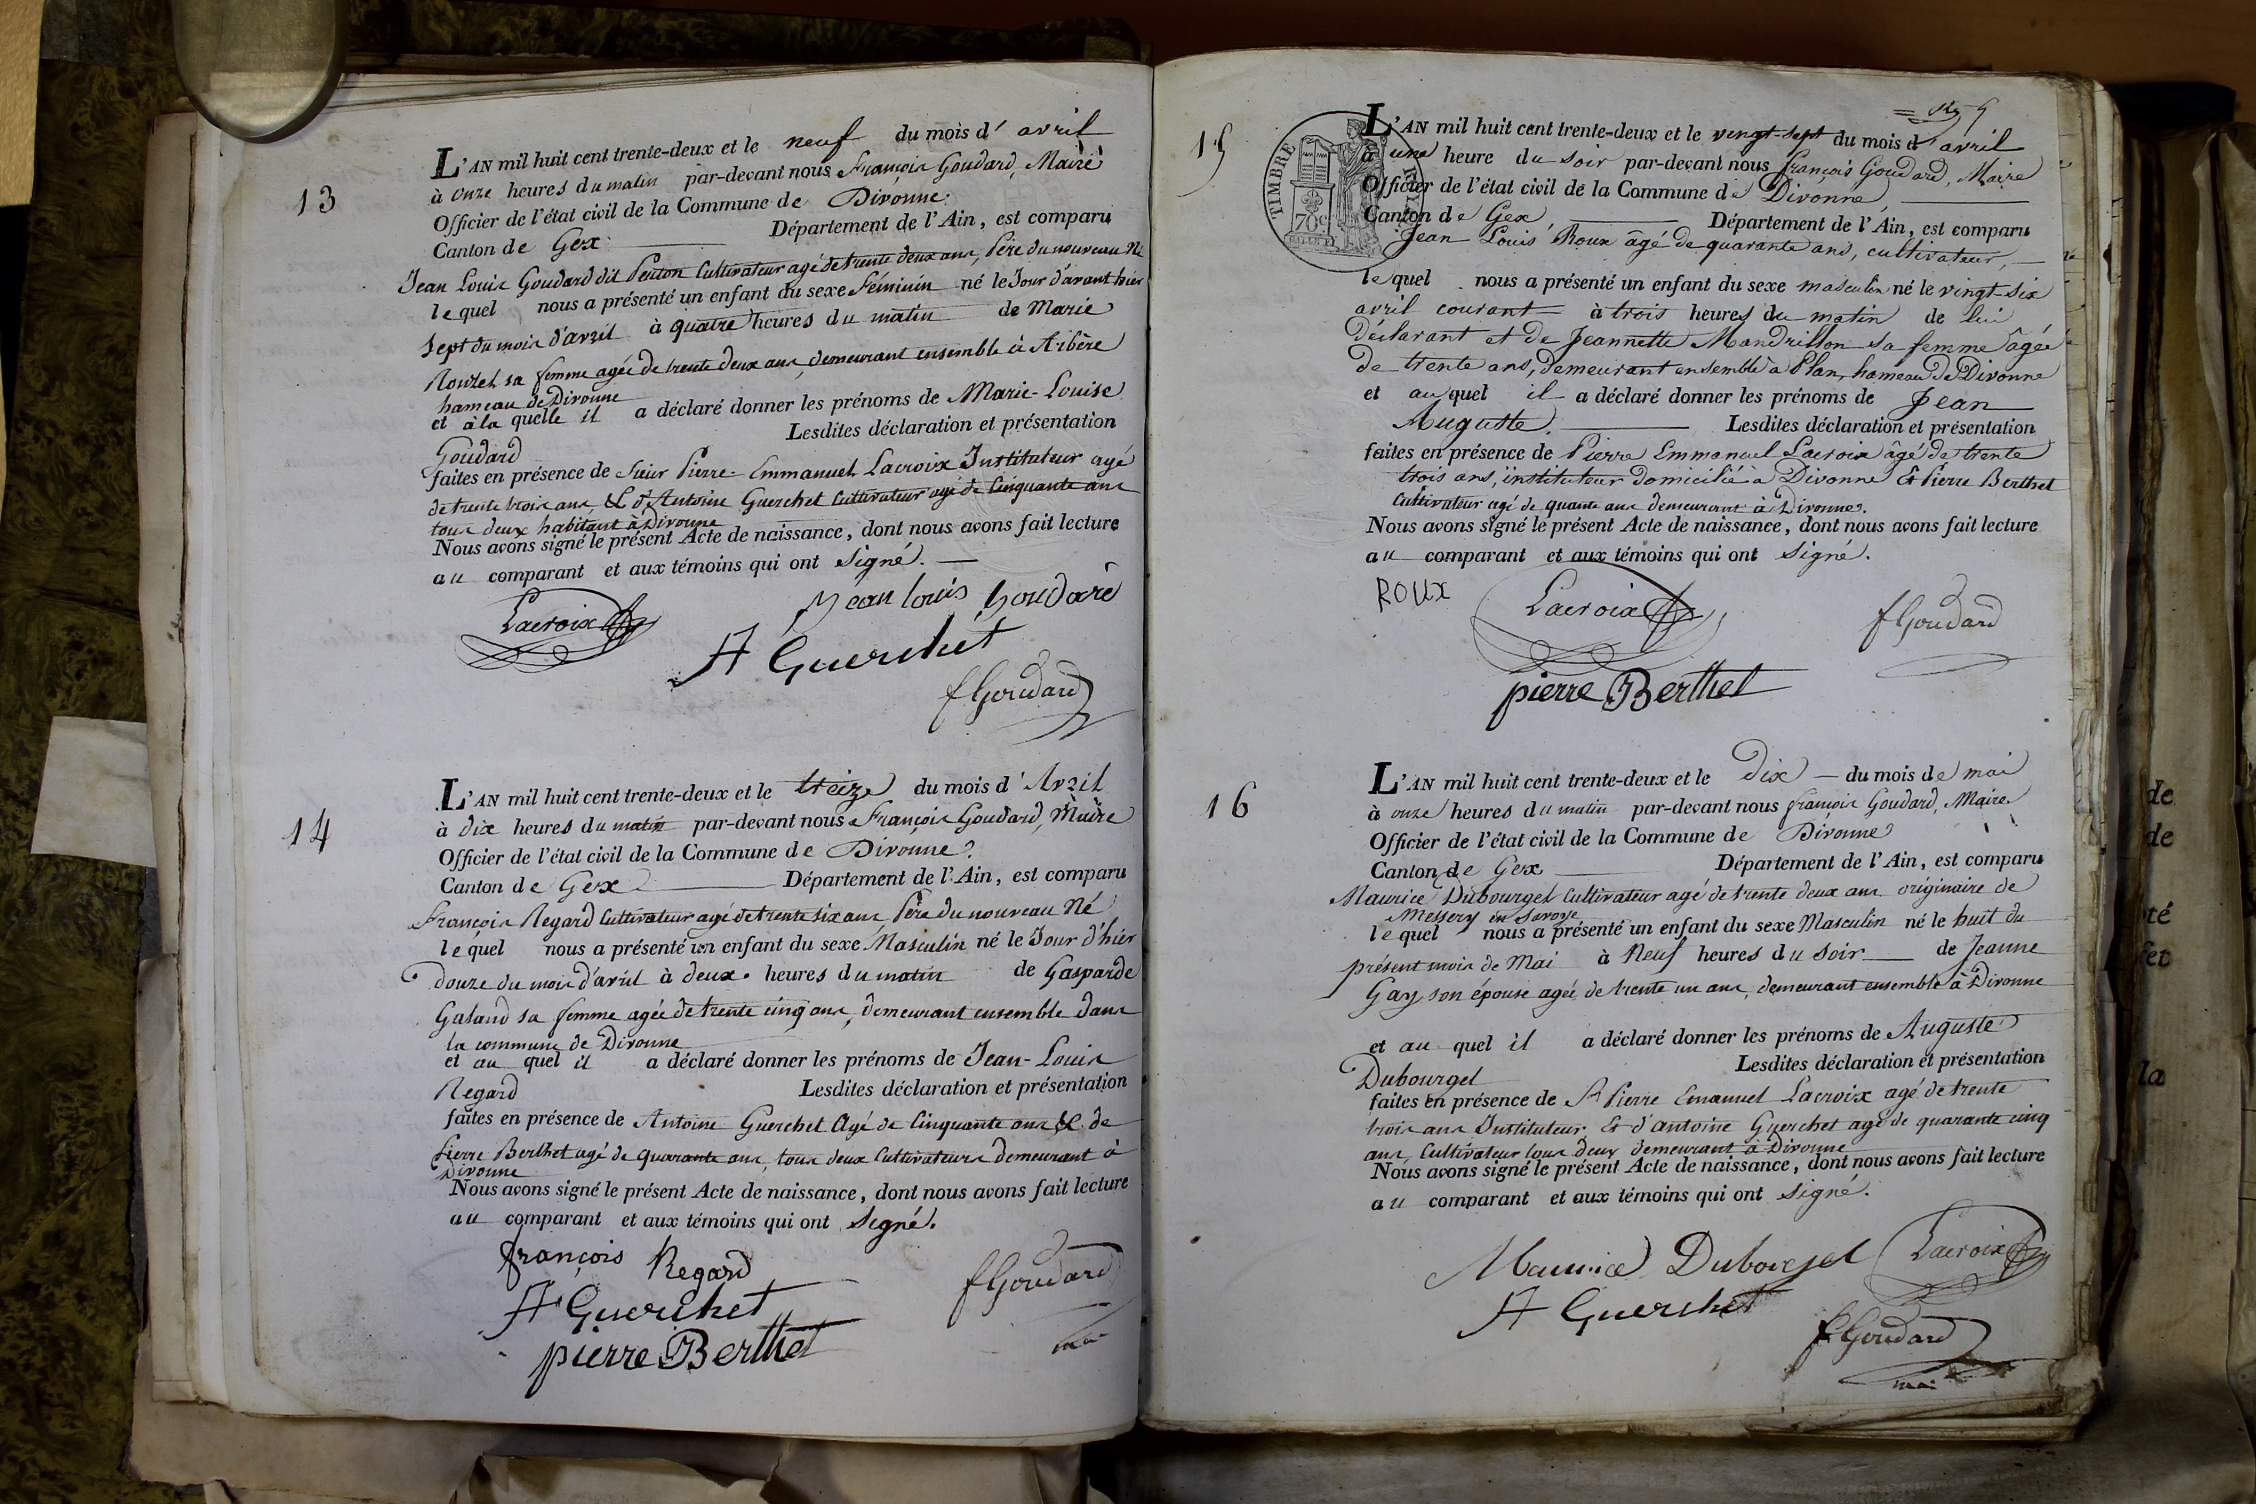 13
L'AN mil huit cent trente-deux et le neuf du mois d' avril
à onze heures du matin par-devant nous François Goudard, Maire
Officier de l'état civil de la Commune de Divonne
Canton de Gex Département de l'Ain, est comparu
Jean Louis Goudard dit Penton Cultivateur agé de trente deux ans, Père du nouveau Né
lequel nous a présenté un enfant du sexe Féminin né le Jour d'avant hier
sept du mois d'avril à quatre heures du matin de Marie
sa femme agée de trente deux ans, demeurant ensemble à Arbère
hameau de Divonne
et à la quelle il a déclaré donner les prénoms de Marie-Louise
Goudard Lesdites déclaration et présentation
faites en présence de Sieur Pierre-Emmanuel Lacroix Instituteur agé
de trente trois ans & d'Antoine Guerchet Cultivateur agé de Cinquante ans
tous deux habitant à Divonne
Nous avons signé le présent Acte de naissance, dont nous avons fait lecture
au comparant et aux témoins qui ont signé.
Jean louis Goudard
Lacroix
A Guerchet
f Goudard
14
L'AN mil huit cent trente-deux et le treize du mois d' Avril
à dix heures du matin par-devant nous François Goudard, Maire
Officier de l'état civil de la Commune de Divonne
Canton de Gex Département de l'Ain, est comparu
François Regard Cultivateur agé de trente six ans Père du nouveau Né
lequel nous a présenté un enfant du sexe Masculin né le Jour d'hier
douze du mois d'avril à deux heures du matin de Gasparde
Galand sa femme agée de trente cinq ans, demeurant ensemble dans
la commune de Divonne
et au quel il a déclaré donner les prénoms de Jean-Louis
Regard Lesdites déclaration et présentation
faites en présence de Antoine Guerchet Agé de Cinquante ans & de
Pierre Berthet agé de quarante ans, tous deux Cultivateurs demeurant à
Divonne
Nous avons signé le présent Acte de naissance, dont nous avons fait lecture
au comparant et aux témoins qui ont signé.
françois Regard
f Goudard
A Guerchet
pierre Berthet
15
TIMBRE
70c
L'AN mil huit cent trente-deux et le vingt-sept du mois d'avril
à une heure du soir par-devant nous françois Goudard, Maire
Officier de l'état civil de la Commune de Divonne
Canton de Gex, Département de l'Ain, est comparu
Jean Louis Roux âgé de quarante ans, cultivateur,
lequel nous a présenté un enfant du sexe masculin né le vingt-six
avril courant à trois heures du matin de lui
déclarant et de Jeannette Mandrillon sa femme âgée
de trente ans, demeurant ensemble à Plan, hameau de Divonne
et auquel il a déclaré donner les prénoms de Jean
Auguste. Lesdites déclaration et présentation
faites en présence de Pierre Emmanuel Lacroix âgé de trente
trois ans, instituteur domicilié à Divonne & Pierre Berthet
Cultivateur agé de quante ans demeurant à Divonne.
Nous avons signé le présent Acte de naissance, dont nous avons fait lecture
au comparant et aux témoins qui ont signé.
ROUX
Lacroix
f Goudard
pierre Berthet
16
L'AN mil huit cent trente-deux et le dix du mois de mai
à onze heures du matin par-devant nous françois Goudard, Maire
Officier de l'état civil de la Commune de Divonne
Canton de Gex Département de l'Ain, est comparu
Maurice Dubourgel Cultivateur agé de trente deux ans originaire de
Messery en Savoye
lequel nous a présenté un enfant du sexe Masculin né le huit du
présent mois de Mai à Neuf heures du soir de Jeanne
Gay son épouse agée de trente un ans, demeurant ensemble à Divonne
et au quel il a déclaré donner les prénoms de Auguste
Dubourgel Lesdites déclaration et présentation
faites en présence de Sr Pierre Emanuel Lacroix agé de trente
trois ans Instituteur & d'antoine Guerchet agé de quarante cinq
ans, Cultivateur tous deux demeurant à Divonne
Nous avons signé le présent Acte de naissance, dont nous avons fait lecture
au comparant et aux témoins qui ont signé.
Maurice Dubourgel
Lacroix
A Guerchet
f Goudard
de
de
té
la